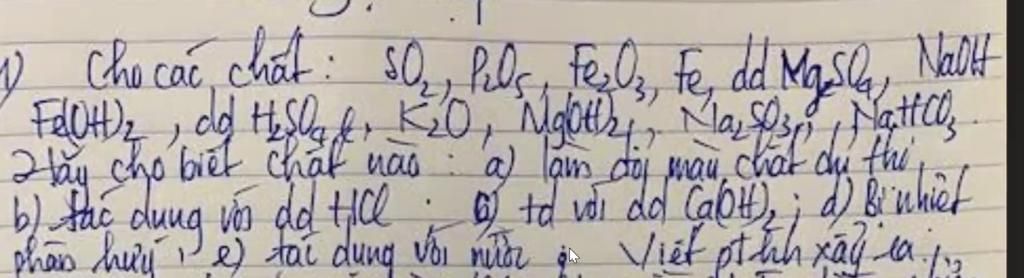 1) Cho các chất : SO2, P2O5, Fe2O3, Fe, dd MgSO4, NaOH
Fe(OH)2, dd H2SO4, K2O, Mg(OH)2, Na2SO3, NaHCO3.
Hãy cho biết chất nào : a) làm đổi màu chất chỉ thị.
b) tác dụng với dd HCl. c) td với dd Ca(OH)2; d) Bị nhiệt
phân huỷ, e) tác dụng với nước. Viết pthh xảy ra.